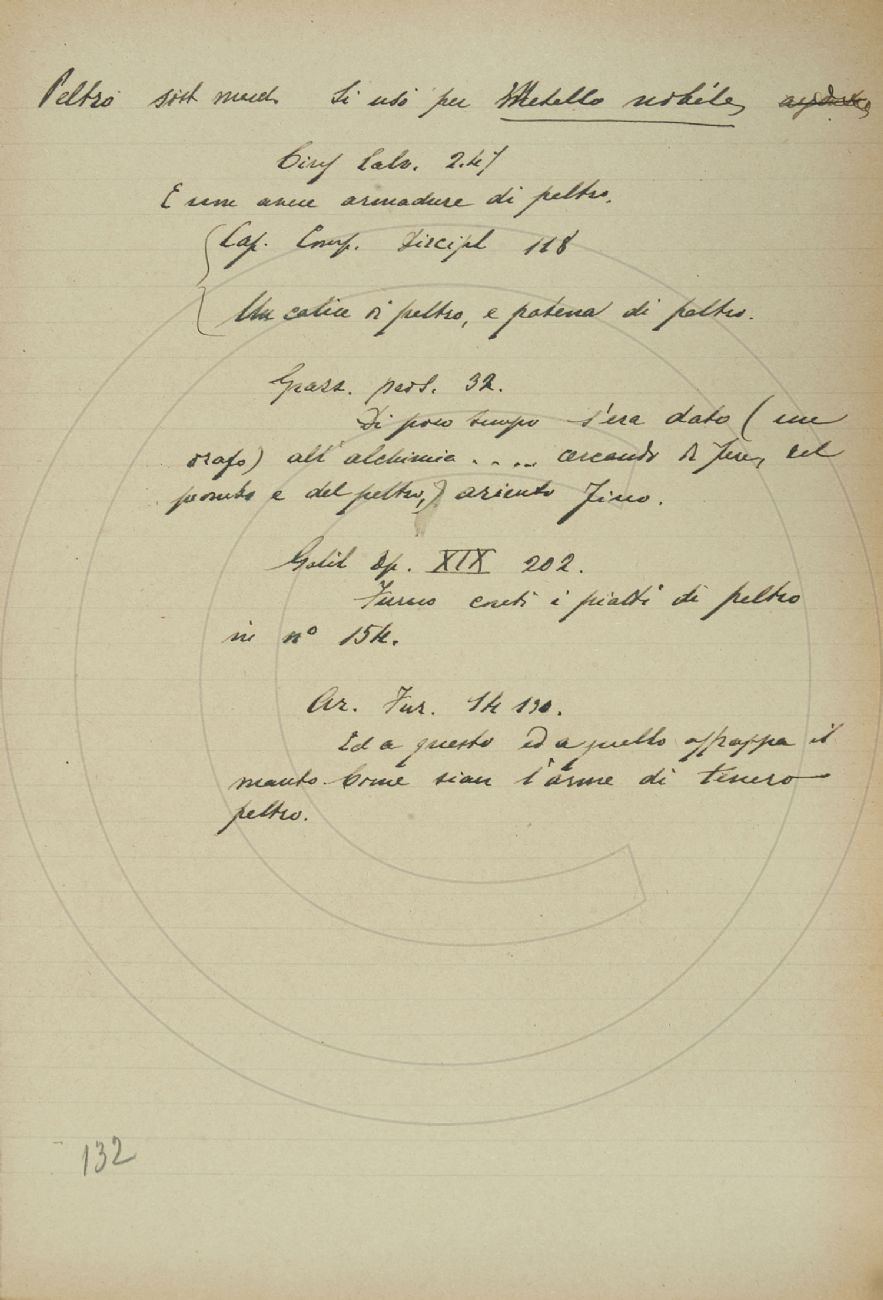 Peltro sost masch Si usò per Metallo nobile,
Cirif Calv. 2.47
E non avea armadure di peltro.
Cap. Comp. Discipl 118
Un calice di peltro, e patena di peltro.
Grazz. pros. 32.
Di poco tempo s'era dato (un
orafo) all'alchimia . . . . cercando di fare, del
piombo e del peltro, ariento fino.
Galil Op. XIX 202.
Furno conti i piatti di peltro
in n° 154.
Ar. Fur. 14 120.
Ed a questo ed a quello affrappa il
manto Come sian l'arme di tenero
peltro.
132